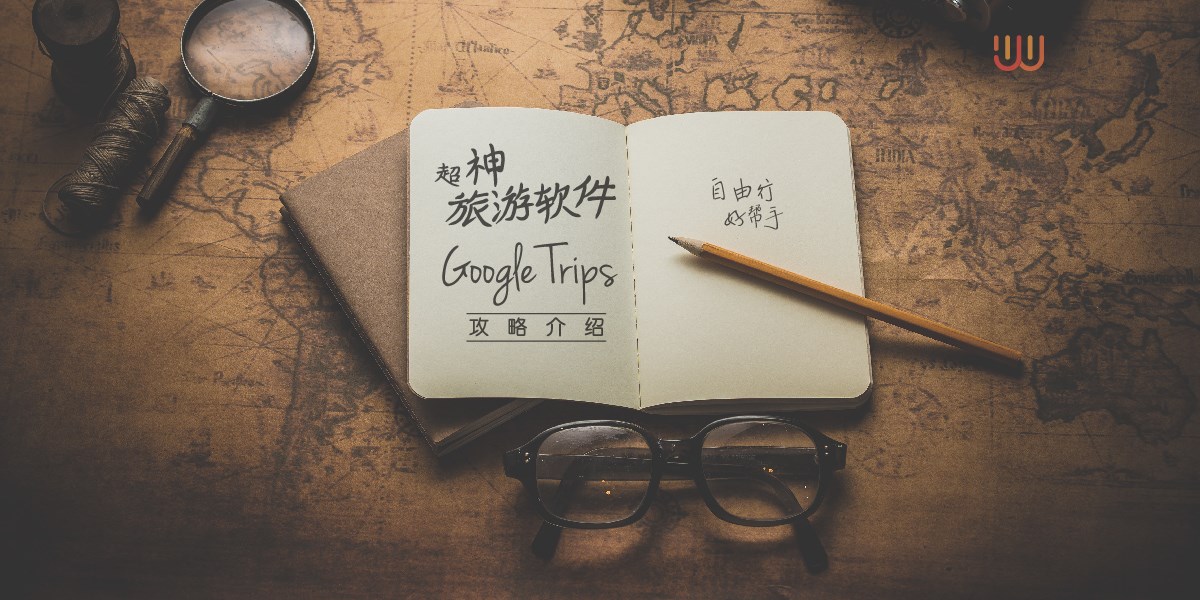 超神
旅游软件
Google Trips
攻略介绍
自由行
好帮手
INDIA